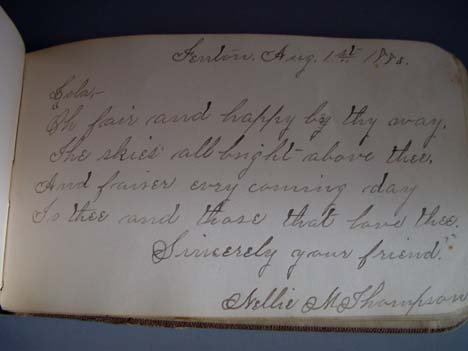 Fenton, Aug. 1st 1888.
Cola,-
"Oh fair and happy by thy way,
The skies all bright above thee,
And fraiser evry coming day
To thee and those that love thee."
Sincerely your friend,
Nellie M Thompson